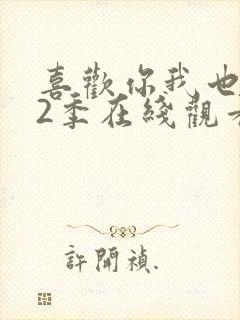 喜歡你我也
2季在綫觀
許開禎.